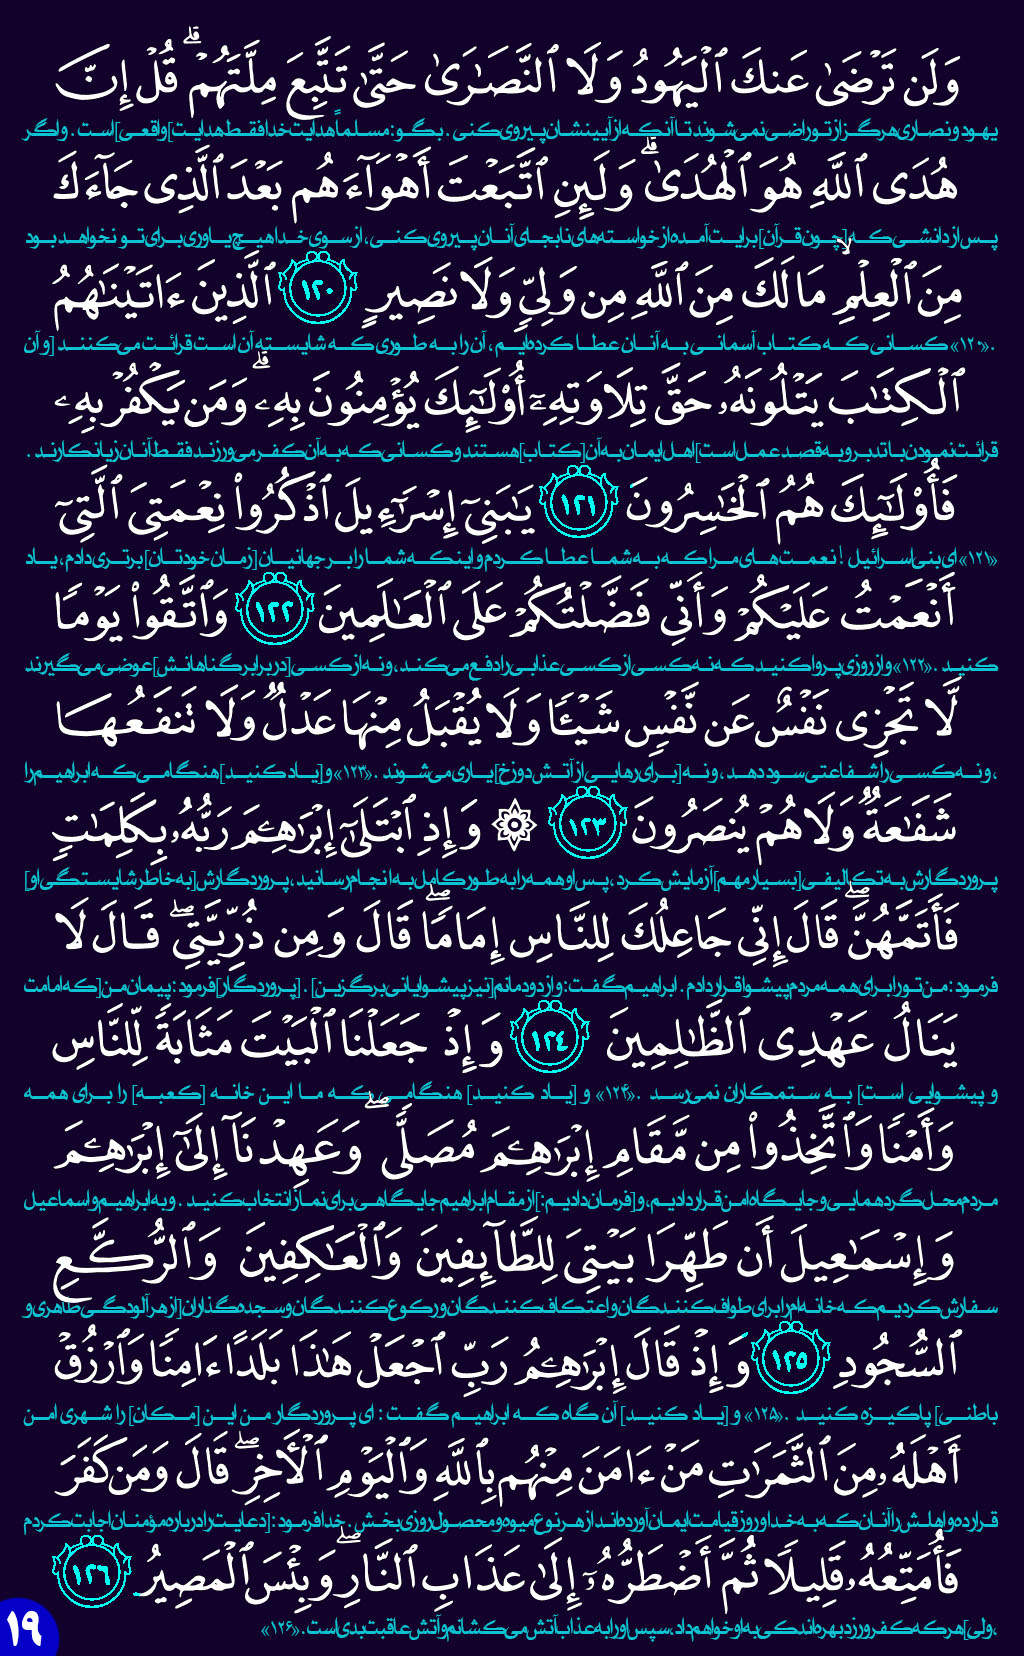 وَلَن تَرۡضَىٰ عَنكَ ٱلۡيَهُودُ وَلَا ٱلنَّصَـٰرَىٰ حَتَّىٰ تَتَّبِعَ مِلَّتَهُمۡۗ قُلۡ إِنَّ
یهود و نصاری هرگز از تو راضی نمی‌شوند تا آنکه از آیینشان پیروی کنی . بگو : مسلماً هدایت خدا فقط هدایت [واقعی] است . و اگر
هُدَى ٱللَّهِ هُوَ ٱلۡهُدَىٰۗ وَلَئِنِ ٱتَّبَعۡتَ أَهۡوَآءَهُم بَعۡدَ ٱلَّذِى جَآءَكَ
پس از دانشی که [چون قرآن] برایت آمده از خواسته‌های نابجای آنان پیروی کنی ، از سوی خدا هیچ یاوری برای تو نخواهد بود
مِنَ ٱلۡعِلۡمِۙ مَا لَكَ مِنَ ٱللَّهِ مِن وَلِىٍّ وَلَا نَصِيرٍ ١٢٠ ٱلَّذِينَ ءَاتَيۡنَـٰهُمُ
. «۱۲۰» کسانی که کتاب آسمانی به آنان عطا کرده‌ایم ، آن را به طوری که شایسته آن است قرائت می‌کنند [و آن
ٱلۡكِتَـٰبَ يَتۡلُونَهُۥ حَقَّ تِلَاوَتِهِۦٓ أُوْلَـٰٓئِكَ يُؤۡمِنُونَ بِهِۦۗ وَمَن يَكۡفُرۡ بِهِۦ
قرائت نمودن با تدبر و به قصد عمل است] اهل ایمان به آن [کتاب] هستند و کسانی که به آن کفر می‌ورزند فقط آنان زیانکارند .
فَأُوْلَـٰٓئِكَ هُمُ ٱلۡخَـٰسِرُونَ ١٢١ يَـٰبَنِىٓ إِسۡرَـٰٓءِيلَ ٱذۡكُرُواْ نِعۡمَتِىَ ٱلَّتِىٓ
«۱۲۱» ای بنی اسرائیل ! نعمت‌های مرا که به شما عطا کردم و اینکه شما را بر جهانیان [زمان خودتان] برتری دادم ، یاد
أَنۡعَمۡتُ عَلَيۡكُمۡ وَأَنِّى فَضَّلۡتُكُمۡ عَلَى ٱلۡعَـٰلَمِينَ ١٢٢ وَٱتَّقُواْ يَوۡمًا
کنید . «۱۲۲» و از روزی پروا کنید که نه کسی از کسی عذابی را دفع می‌کند ، و نه از کسی [در برابر گناهانش] عوضی می‌گیرند
لَّا تَجۡزِى نَفۡسٌ عَن نَّفۡسٍ شَيۡـًٔا وَلَا يُقۡبَلُ مِنۡهَا عَدۡلٌ وَلَا تَنفَعُهَا
، و نه کسی را شفاعتی سود دهد ، و نه [برای رهایی از آتش دوزخ] یاری می‌شوند . «۱۲۳» و [یاد کنید] هنگامی که ابراهیم را
شَفَـٰعَةٌ وَلَا هُمۡ يُنصَرُونَ ١٢٣ ۞ وَإِذِ ٱبۡتَلَىٰٓ إِبۡرَٰهِـۧمَ رَبُّهُۥ بِكَلِمَـٰتٍ
پروردگارش به تکالیفی [بسیار مهم] آزمایش کرد ، پس او همه را به طور کامل به انجام رسانید ، پروردگارش [به خاطر شایستگی او]
فَأَتَمَّهُنَّۖ قَالَ إِنِّى جَاعِلُكَ لِلنَّاسِ إِمَامًاۖ قَالَ وَمِن ذُرِّيَّتِىۖ قَالَ لَا
فرمود : من تو را برای همه مردم پیشوا قرار دادم . ابراهیم گفت : و از دودمانم [نیز پیشوایانی برگزین] . [پروردگار] فرمود : پیمان من [که امامت
يَنَالُ عَهۡدِى ٱلظَّـٰلِمِينَ ١٢٤ وَإِذۡ جَعَلۡنَا ٱلۡبَيۡتَ مَثَابَةً لِّلنَّاسِ
و پیشوایی است] به ستمکاران نمی‌رسد . «۱۲۴» و [یاد کنید] هنگامی که ما این خانه [کعبه] را برای همه
وَأَمۡنًا وَٱتَّخِذُواْ مِن مَّقَامِ إِبۡرَٰهِـۧمَ مُصَلًّىۖ وَعَهِدۡنَآ إِلَىٰٓ إِبۡرَٰهِـۧمَ
مردم محل گردهمایی و جایگاه امن قرار دادیم ، و [فرمان دادیم :] از مقام ابراهیم جایگاهی برای نماز انتخاب کنید . و به ابراهیم و اسماعیل
وَإِسۡمَـٰعِيلَ أَن طَهِّرَا بَيۡتِىَ لِلطَّآئِفِينَ وَٱلۡعَـٰكِفِينَ وَٱلرُّكَّعِ
سفارش کردیم که خانه‌ام را برای طواف کنندگان و اعتکاف کنندگان و رکوع کنندگان و سجده گذاران [از هر آلودگی ظاهری و
ٱلسُّجُودِ ١٢٥ وَإِذۡ قَالَ إِبۡرَٰهِـۧمُ رَبِّ ٱجۡعَلۡ هَـٰذَا بَلَدًا ءَامِنًا وَٱرۡزُقۡ
باطنی] پاکیزه کنید . «۱۲۵» و [یاد کنید] آن گاه که ابراهیم گفت : ای پروردگار من این [مکان] را شهری امن
أَهۡلَهُۥ مِنَ ٱلثَّمَرَٰتِ مَنۡ ءَامَنَ مِنۡهُم بِٱللَّهِ وَٱلۡيَوۡمِ ٱلۡأٓخِرِۖ قَالَ وَمَن كَفَرَ
قرار ده و اهلش را آنان که به خدا و روز قیامت ایمان آورده‌اند از هر نوع میوه و محصول روزی بخش . خدا فرمود : [دعایت را درباره مؤمنان اجابت کردم
فَأُمَتِّعُهُۥ قَلِيلًا ثُمَّ أَضۡطَرُّهُۥٓ إِلَىٰ عَذَابِ ٱلنَّارِۖ وَبِئۡسَ ٱلۡمَصِيرُ ١٢٦
، ولی] هر که کفر ورزد بهره اندکی به او خواهم داد ، سپس او را به عذاب آتش می‌کشانم و آتش عاقبت بدی است . «۱۲۶»
١٩